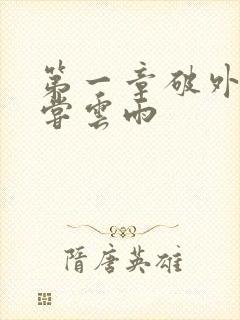 第一章破外
嘗雲雨
隋唐英雄